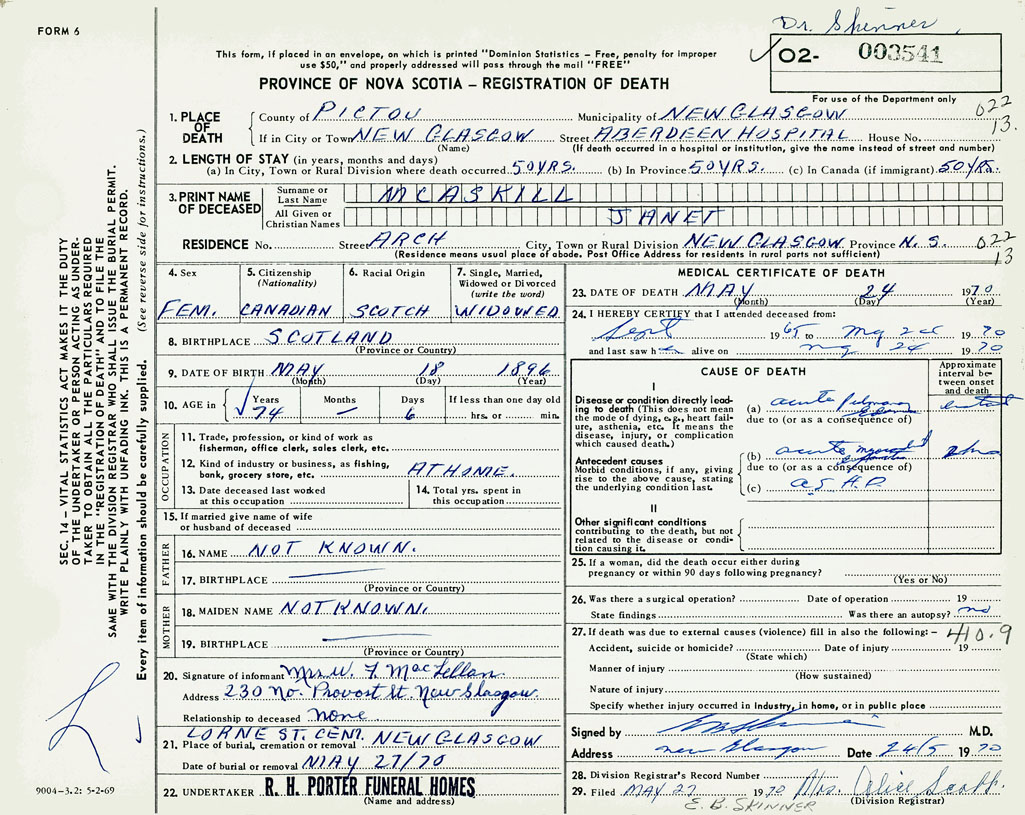 FORM 6
Dr. Skinner
This form, if placed in an envelope, on which is printed "Dominion Statistics – Free, penalty for improper
use $50," and properly addressed will pass through the mail "FREE"
02- 003541
For use of the Department only
PROVINCE OF NOVA SCOTIA – REGISTRATION OF DEATH
022
13.
1. PLACE OF DEATH
County of PICTOU Municipality of NEW GLASGOW
If in City or Town NEW GLASGOW Street ABERDEEN HOSPITAL House No.
(Name) (If death occurred in a hospital or institution, give the name instead of street and number)
2. LENGTH OF STAY (in years, months and days)
(a) In City, Town or Rural Division where death occurred 50 YRS. (b) In Province 50 YRS. (c) In Canada (if immigrant) 50 YRS.
3. PRINT NAME OF DECEASED
Surname or Last Name MCASKILL
All Given or Christian Names JANET
RESIDENCE No. Street ARCH City, Town or Rural Division NEW GLASGOW Province N. S.
022
13
(Residence means usual place of abode. Post Office Address for residents in rural parts not sufficient)
4. Sex
FEM.
5. Citizenship
(Nationality)
CANADIAN
6. Racial Origin
SCOTCH
7. Single, Married,
Widowed or Divorced
(write the word)
WIDOWED
8. BIRTHPLACE SCOTLAND
(Province or Country)
9. DATE OF BIRTH MAY 18 1896
(Month) (Day) (Year)
10. AGE in
Years Months Days If less than one day old
74 – 6 hrs. or min.
OCCUPATION
11. Trade, profession, or kind of work as
fisherman, office clerk, sales clerk, etc.
12. Kind of industry or business, as fishing,
bank, grocery store, etc. AT HOME.
13. Date deceased last worked
at this occupation
14. Total yrs. spent in
this occupation
15. If married give name of wife
or husband of deceased
FATHER
16. NAME NOT KNOWN.
17. BIRTHPLACE
(Province or Country)
MOTHER
18. MAIDEN NAME NOT KNOWN.
19. BIRTHPLACE
(Province or Country)
20. Signature of informant Mrs. W. F. MacLellan.
Address 230 No. Provost St. New Glasgow.
Relationship to deceased none
LORNE ST. CEM. NEW GLASGOW
21. Place of burial, cremation or removal
Date of burial or removal MAY 27/70
22. UNDERTAKER R. H. PORTER FUNERAL HOMES
(Name and address)
MEDICAL CERTIFICATE OF DEATH
23. DATE OF DEATH MAY 24 1970
(Month) (Day) (Year)
24. I HEREBY CERTIFY that I attended deceased from:
Sept 1965 to 19 70
and last saw h alive on 24 19 70
CAUSE OF DEATH
Approximate
interval be-
tween onset
and death
I
Disease or condition directly lead-
ing to death (This does not mean
the mode of dying, e.g., heart fail-
ure, asthenia, etc. It means the
disease, injury, or complication
which caused death.)
(a) acute
due to (or as a consequence of)
Antecedent causes
Morbid conditions, if any, giving
rise to the above cause, stating
the underlying condition last.
(b) acute
due to (or as a consequence of)
(c)
II
Other significant conditions
contributing to the death, but not
related to the disease or condi-
tion causing it.
25. If a woman, did the death occur either during
pregnancy or within 90 days following pregnancy?
(Yes or No)
26. Was there a surgical operation? Date of operation 19
State findings Was there an autopsy? no
27. If death was due to external causes (violence) fill in also the following: – 410.9
Accident, suicide or homicide? Date of injury 19
(State which)
Manner of injury
(How sustained)
Nature of injury
Specify whether injury occurred in industry, in home, or in public place
Signed by M.D.
Address New Glasgow Date 24/5 1970
28. Division Registrar's Record Number
29. Filed MAY 27 1970 Mrs. Alice Scott.
(Division Registrar)
E. B. SKINNER
SEC. 14 – VITAL STATISTICS ACT MAKES IT THE DUTY
OF THE UNDERTAKER OR PERSON ACTING AS UNDER-
TAKER TO OBTAIN ALL THE PARTICULARS REQUIRED
IN THE "REGISTRATION OF DEATH" AND TO FILE THE
SAME WITH THE DIVISION REGISTRAR WHO SHALL ISSUE THE BURIAL PERMIT.
WRITE PLAINLY WITH UNFADING INK. THIS IS A PERMANENT RECORD.
Every item of information should be carefully supplied. (See reverse side for instructions.)
9004-3.2: 5-2-69